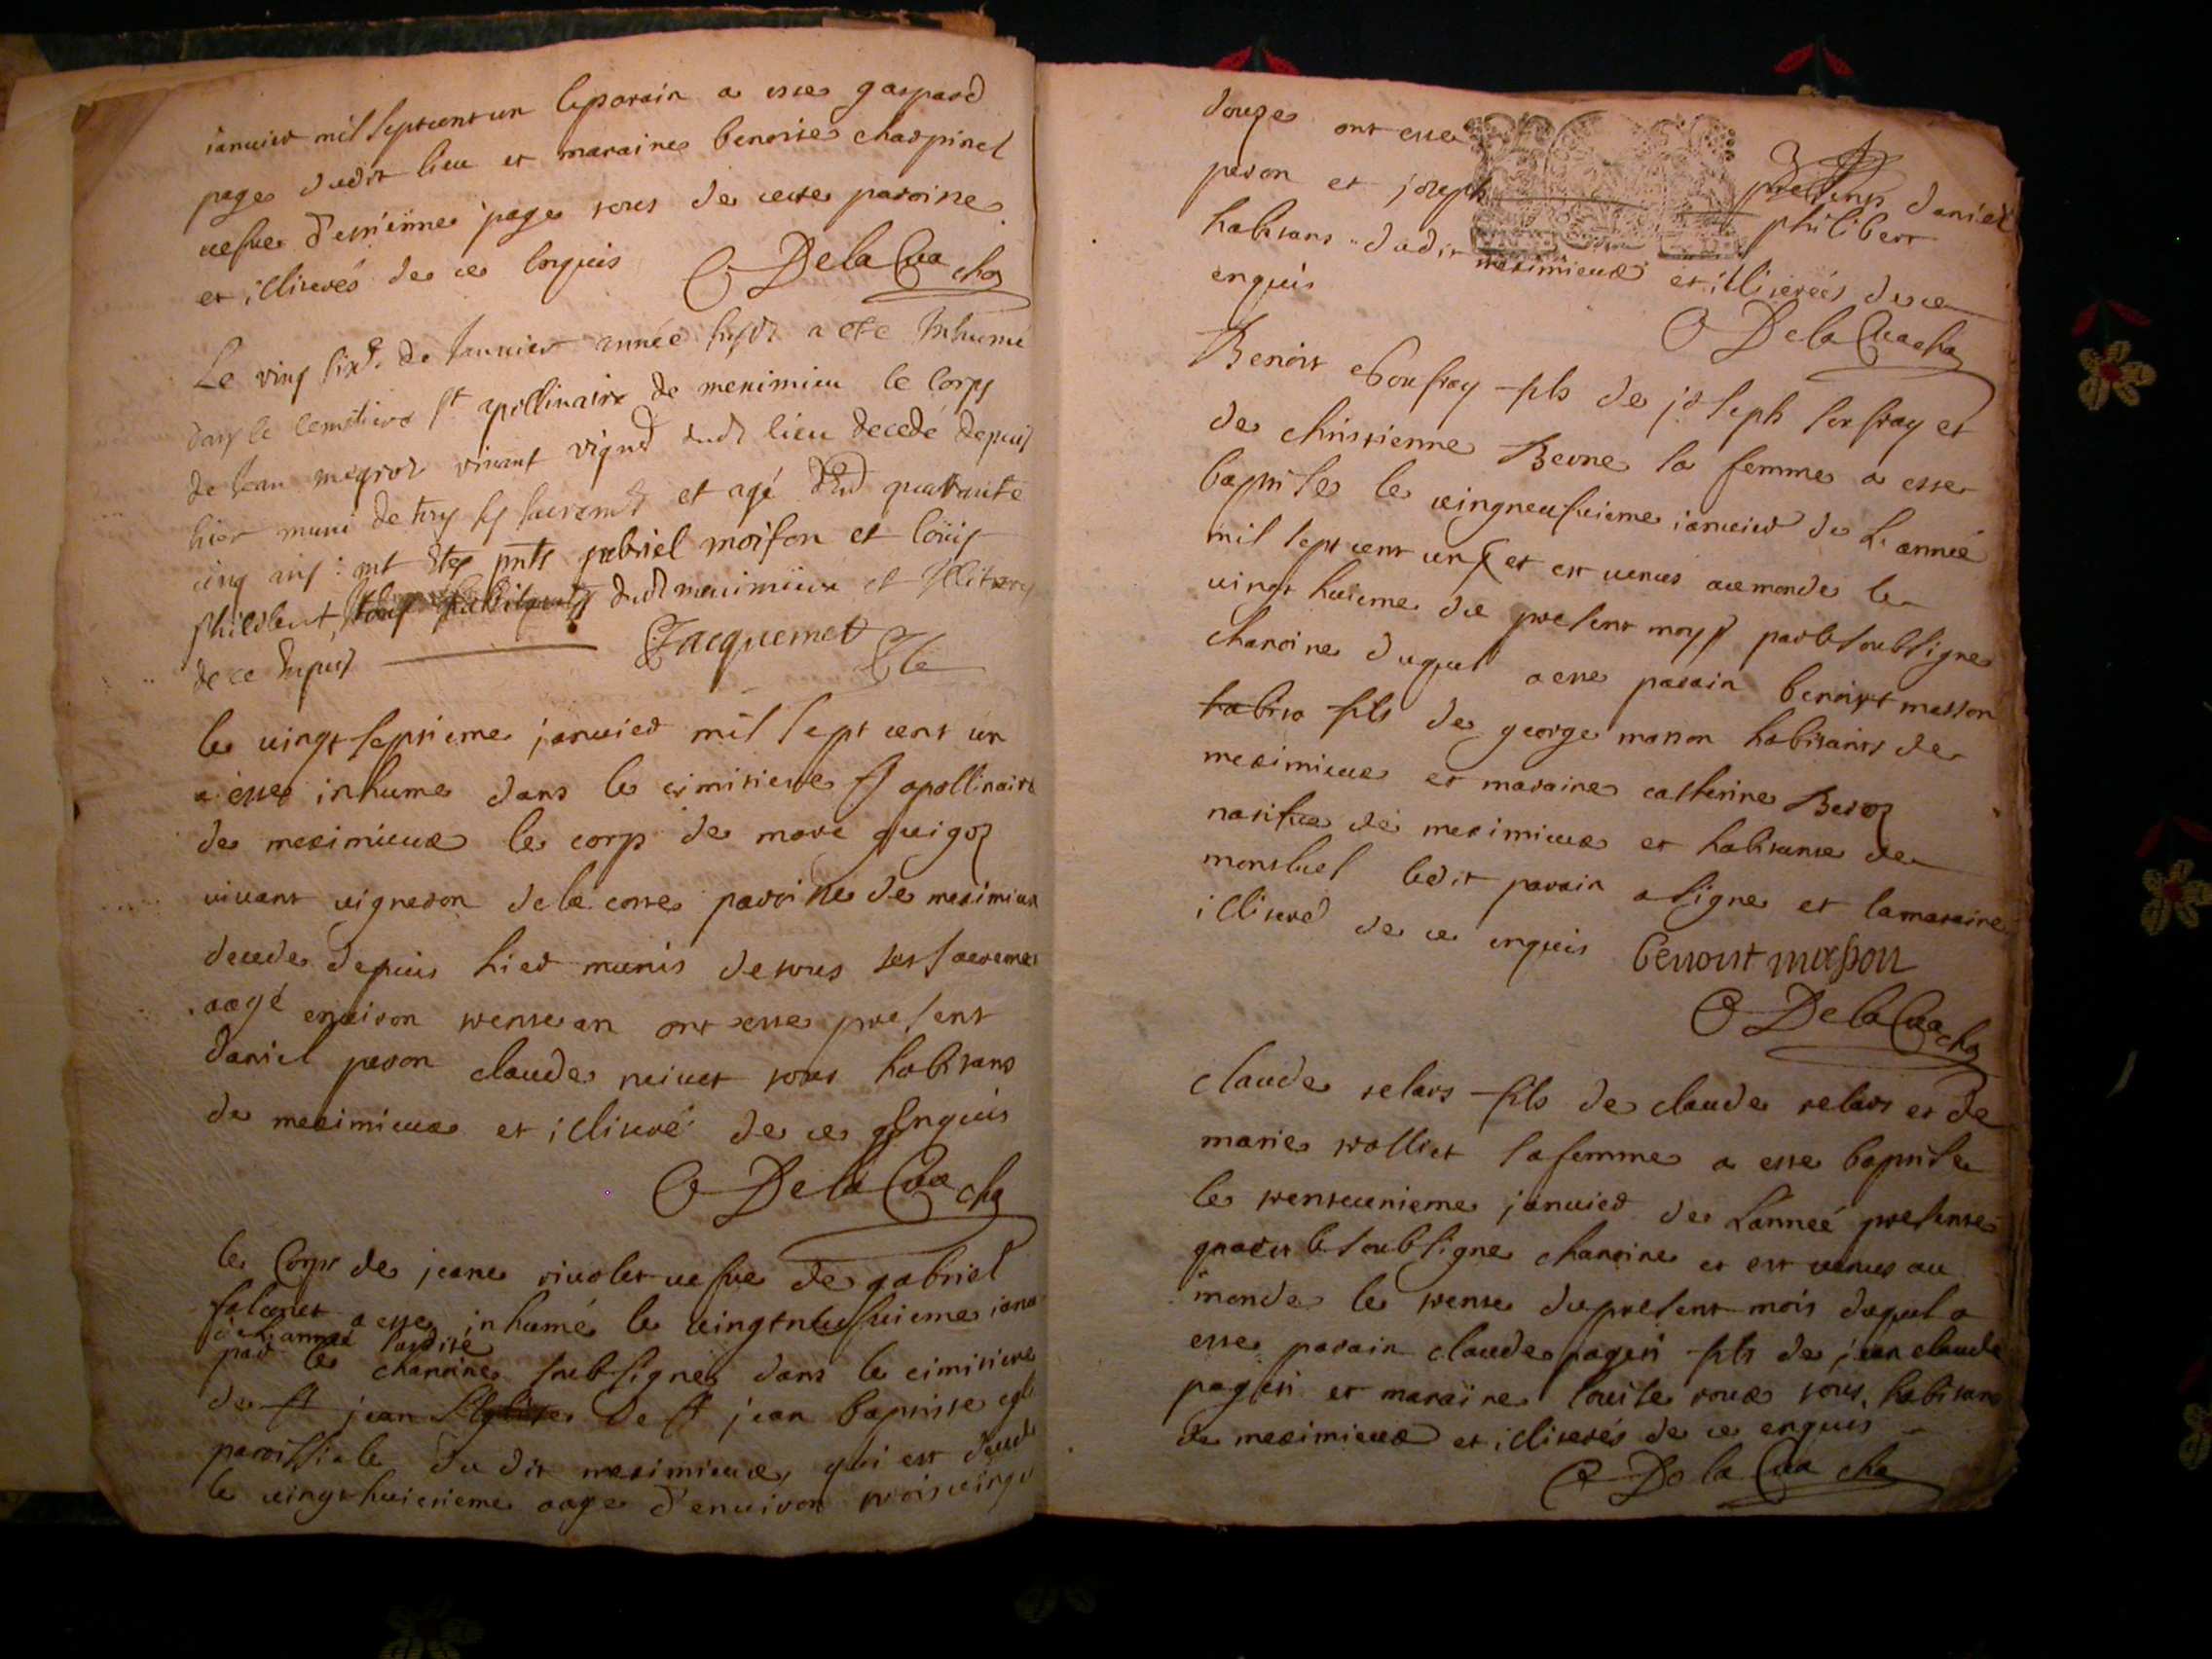 januier mil septcent un le parain a estes gaspard
page dudit lieu et maraine benoite charpinel
uefue d'etiênne page tous de cette paroisse
et illiterés de ce enquis O Delacua cha
Le ving six.e de Januier année susd.t a ete Inhumé
dans le Cemetiere st apollinaire de meximieu le corps
de Jean megroz viuant vigner.d dud.t lieu decedé depuis
hier muni de tous ses sacrem.ts et agé d'en.d quarante
cinq ans: ont etes pnts gabriel moison et loüis
philibert, dud.t meximieux et Illiterés
de ce Enquis Jacquemet
le uingt septieme januier mil sept cent un
a estes inhume dans le cimitiere st apollinaire
de meximieux le corp de marc guigoz
uiuant uigneron de la coste paroisse de meximieux
decede depuis hier munis de tous ses sacremes
aagé enuiron trente an ont estes present
daniel peron claude niuet tous habitans
de meximieux et illiteré de ce Enquis
O Delacua cha
le Corps de jeane riuolet uefue de gabriel
falconet a estes inhumé le uingtneufuieme janu
de l'anneé susdite
par le chanoine subsignes dans le cimitiere
de st jean de st jean baptiste egl
paroissiale dudit meximieux, qui est decede
le uingt huitieme aages d'enuiron trois uingt
douzes ont estes presents daniel
peron et joseph philibert
habitans dudit meximieux et illiterés de ce
enquis
O Delacuacha
Benoit fils de joseph et
de christienne Berne sa femme a estes
baptises le uingneufuieme januier de l'anneé
mil sept cent un et est uenus au monde le
uingt huieme du present moys par le soubsigne
chanoine duquel a estes parain benoist masson
fils de george masson habitants de
meximieux et maraine catherine Beroz
natifue de meximieux et habitante de
montluel ledit parain a signe et la maraine
illiteré de ce enquis benoist masson
O Delacuacha
claude relars fils de claude relars et de
marie trolliet sa femme a este baptise
le trenteunieme januier de l'anneé presente
par le soubsigne chanoine et est uenus au
monde le trente du present mois duquel a
estes parain claude pagesi fils de jean claude
pagesi et maraine louise roux tous habitans
de meximieux et illiterés de ce enquis
O De la Cua cha